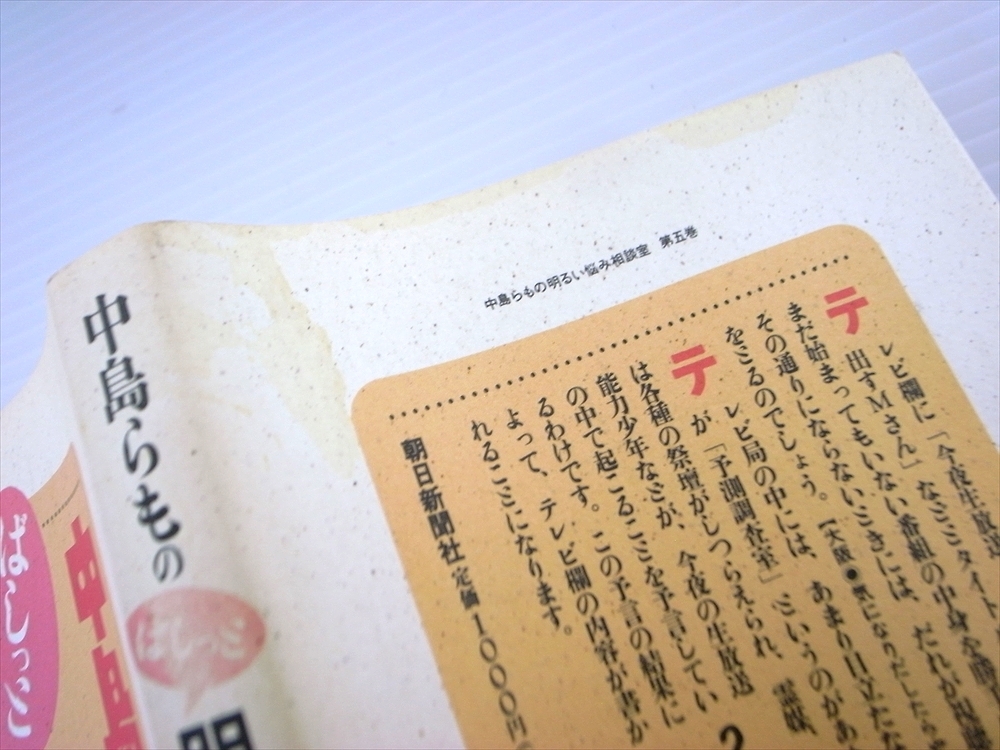 中島らもの明るい悩み相談室 第五巻
テレビ欄に「今夜生放送
出すMさん」などとタイト
まだ始まってもいない番組の中身を
その通りにならないときには、だれが
をとるのでしょう。【大阪●気になりだしたら
テレビ局の中には、あまり目立た
が「予測調査室」というのがあ
は各種の祭壇がしつらえられ、霊
能力少年などが、今夜の生放送
の中で起こることを予言してい
るわけです。この予言の結果に
よって、テレビ欄の内容が書か
れることになります。
朝日新聞社 定価1000円
中島らもの
ばしっと
明
ばしっと
中島